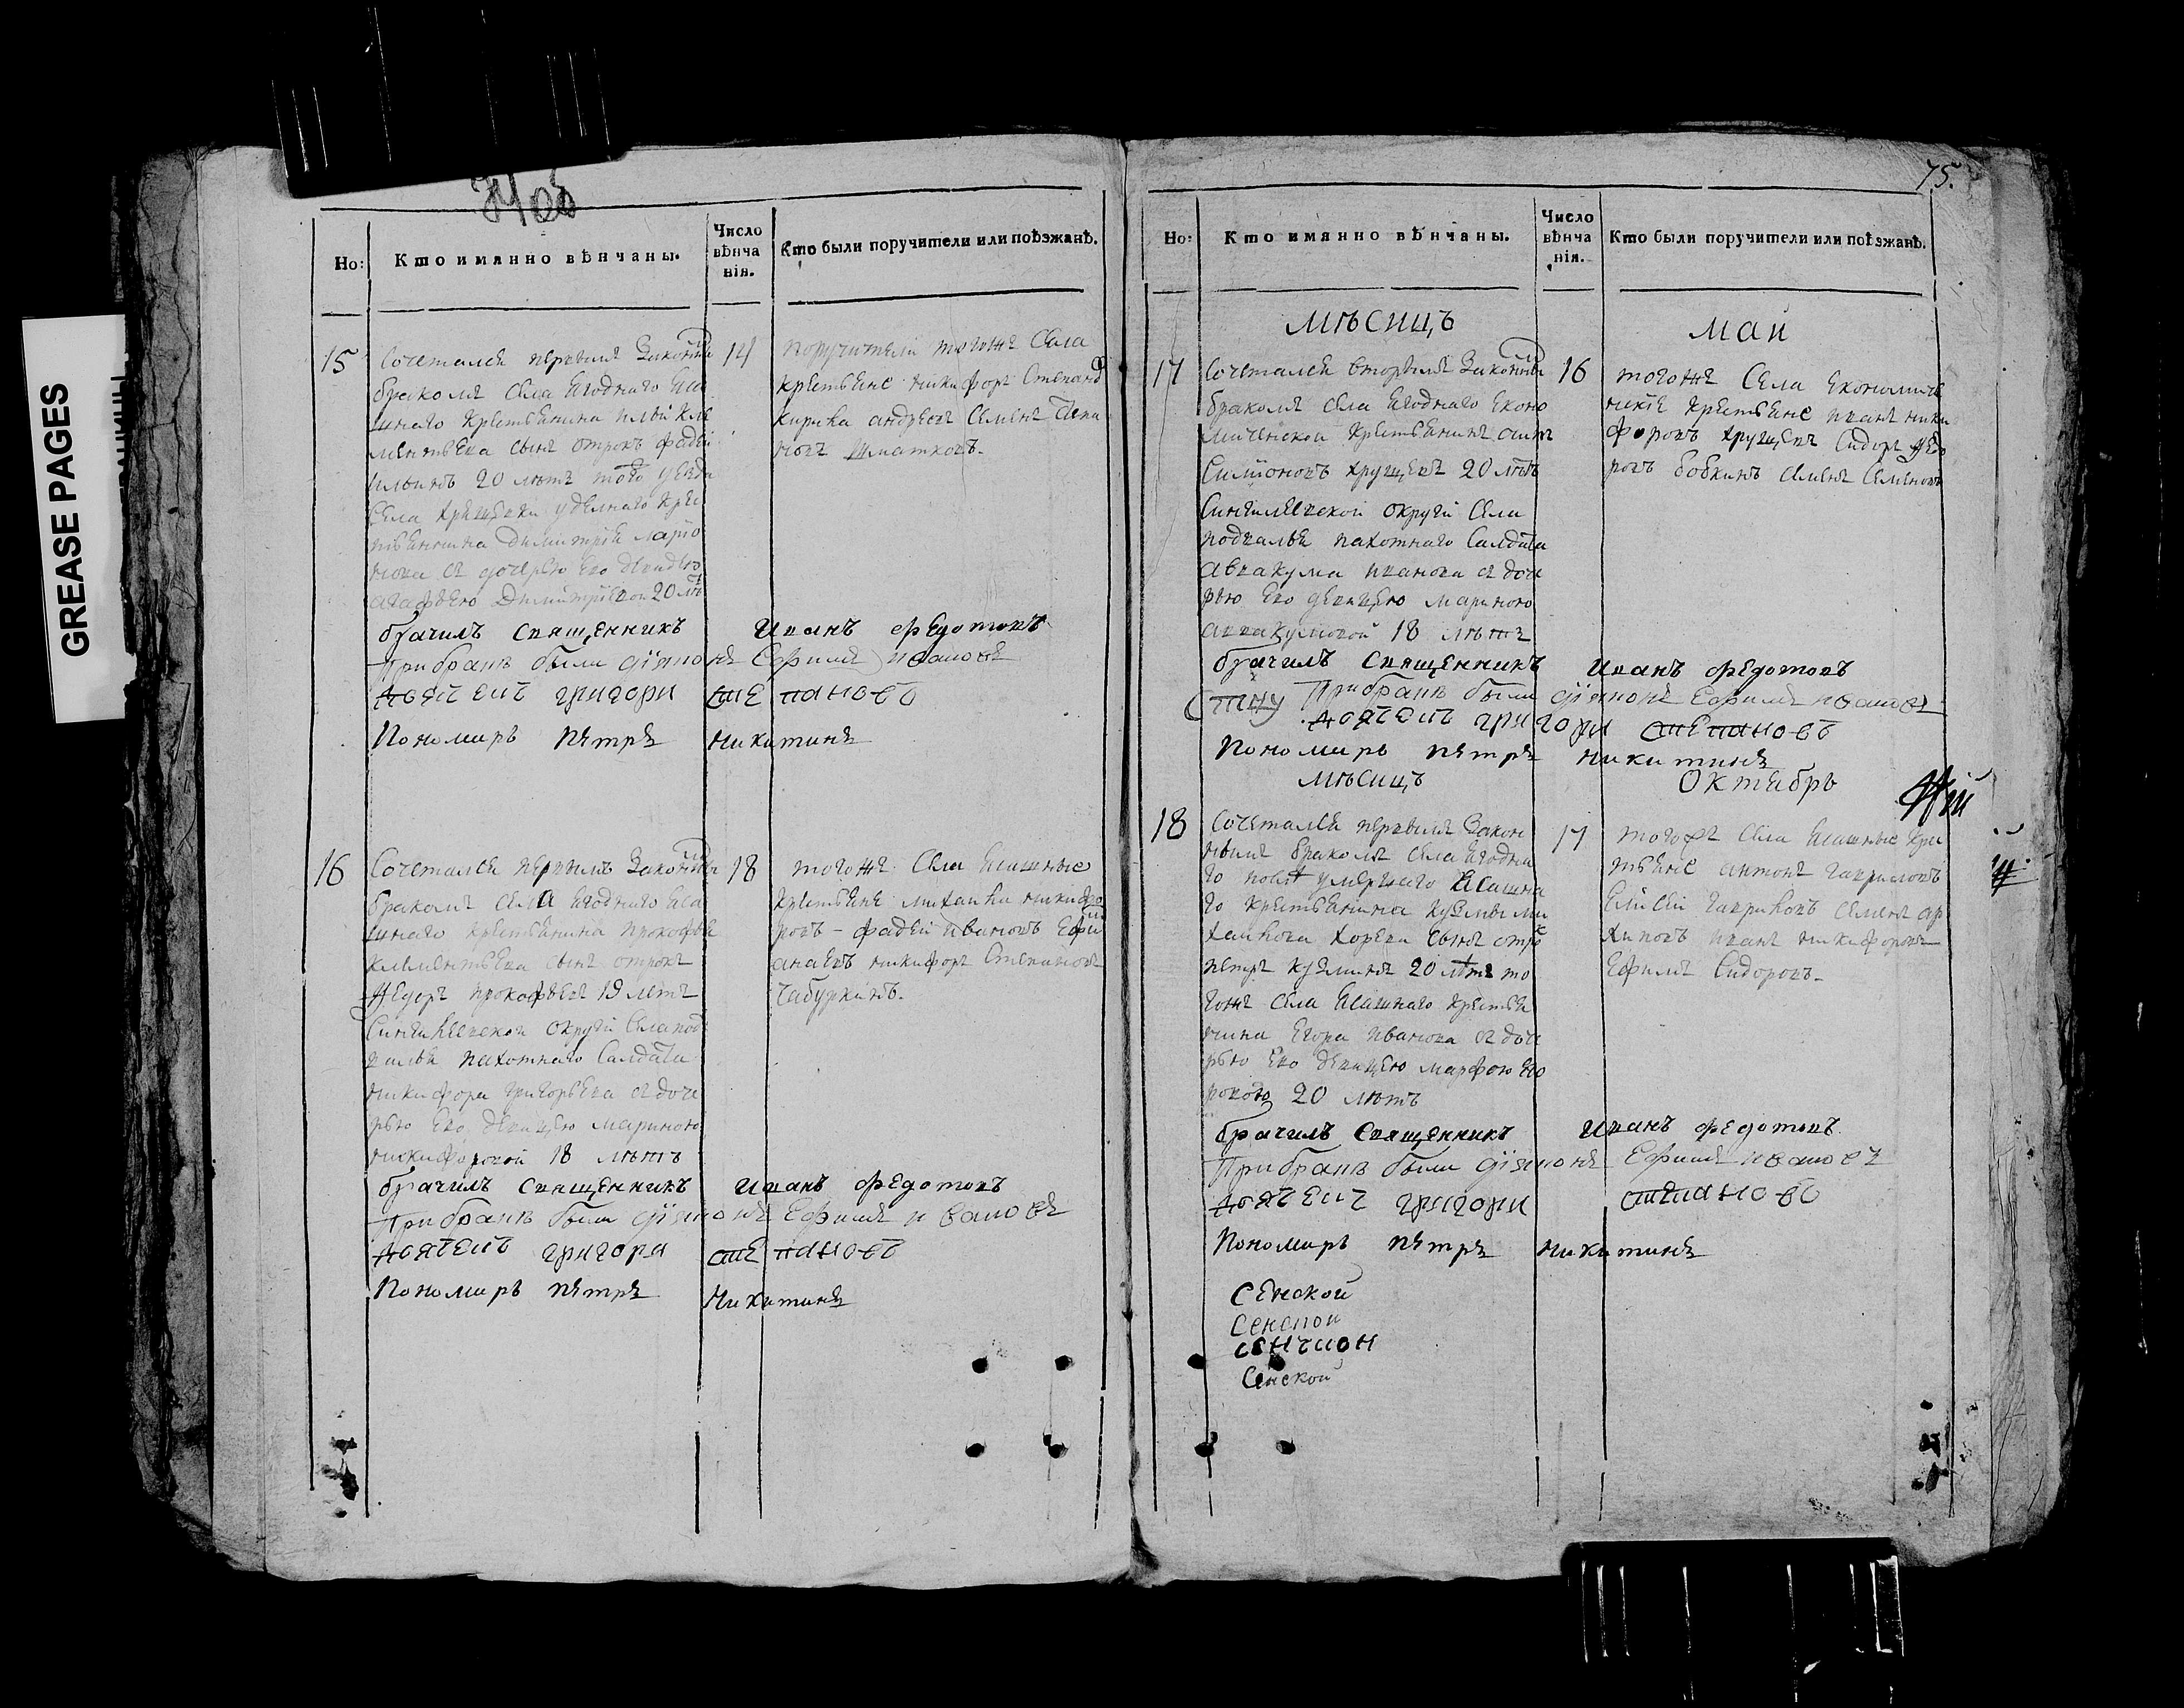 GREASE PAGES
75.
Но:
Кто имянно вѣнчаны.
Число вѣнчанія.
Кто были поручители или поѣзжанѣ.
15
Сочетался первымъ Законны
бракомъ села Ягоднаго Яса
шнаго крестьянина Ильи Кле
ментьева сынъ отрокъ Фадей
Ильинъ 20 лѣтъ того уезда
села Хрящевки уделнаго крес
тьянина Димитрия Ларио
нова съ дочерью Ево девицею
агафьею Димитриевой 20 лѣ
14
поручители тогожъ Села
крестьяне никифоръ Степанов
Кирила андреевъ Семенъ Степа
новъ Шматковъ.
брачилъ священникъ Иванъ Федотовъ
При бракѣ были дiяконъ Ефимъ Ивановъ
дьячекъ григори степановъ
Пономарь петръ никитинъ
16
Сочетался первымъ Законны
бракомъ села Ягоднаго Яса
шнаго крестьянина прокофья
Клементьева сынъ отрокъ
Федоръ прокофьевъ 19 летъ
Сингилеевской округи села под
валья пахотнаго Салдата
никифора григорьева съ доче
рью Ево девицею мариною
никифоровой 18 лѣтъ
18
тогожъ Села Ясашные
крестьяне михаила никифо
ровъ - фадей ивановъ Ефи
анаевъ никифоръ Степановъ
Чабуркинъ.
брачилъ священникъ Иванъ Федотовъ
При бракѣ были дiяконъ Ефимъ Ивановъ
дьячекъ григори степановъ
Пономарь петръ Никитинъ
Но:
Кто имянно вѣнчаны.
Число вѣнчанія.
Кто были поручители или поѣзжанѣ.
мѣсицъ май
17
Сочетался вторымъ Законны
бракомъ села Ягоднаго Еконо
мической крестьянинъ
Симионовъ хрущевъ 20 лѣтъ
Сингилеевской округи Села
подвалья пахотнаго Салдата
аввакума иванова съ доче
рью Ево девицею мариною
аввакумовой 18 лѣтъ
16
тогожъ Села Економиче
ские крестьяне иванъ ники
форовъ хрущевъ Сидоръ Фео
ровъ бобкинъ Семенъ Семеновъ
брачилъ священникъ Иванъ Федотовъ
При бракѣ были дiяконъ Ефимъ Ивановъ
дьячекъ григори степановъ
Пономарь петръ никитинъ
мѣсицъ Октябрь
18
Сочетался первымъ Закон
нымъ бракомъ села Ягодна
го умершаго Ясашна
го крестьянина Кузьмы ми
хайлова хорева сынъ отро
петръ кузминъ 20 лѣтъ то
гожъ села Ясашнаго крестья
нина Егора иванова съ доче
рью Ево девицею марфою Его
ровою 20 лѣтъ
17
тогожъ Села Ясашные кре
стьяне антонъ гавриловъ
Елисей гавриловъ семенъ ар
хиповъ иванъ никифоровъ
Ефимъ Сидоровъ.
брачилъ священникъ Иванъ Федотовъ.
При бракѣ были дiяконъ Ефимъ Ивановъ
дьячекъ григори степановъ
Пономарь петръ никитинъ
Сенской
Сенской
Сенской